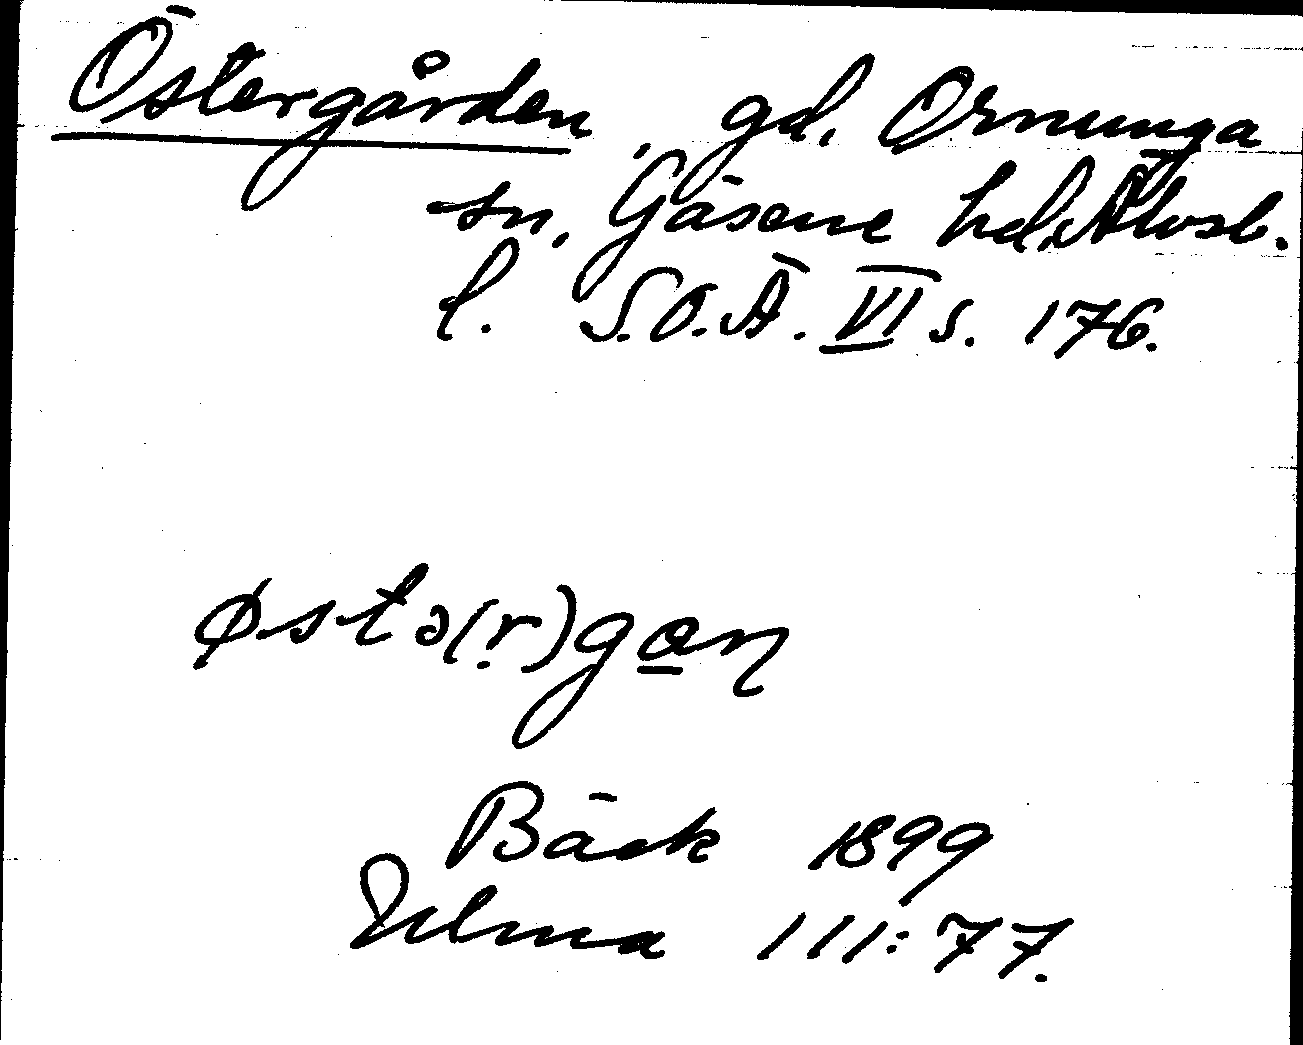 Östergården, gd, Ornunga
sn, Gäsene hd, Älvsb.
l. S.O.Ä. VI s. 176.
østə(r)gɑ̲ɳ
Bäck 1899
Ulma 111:77.